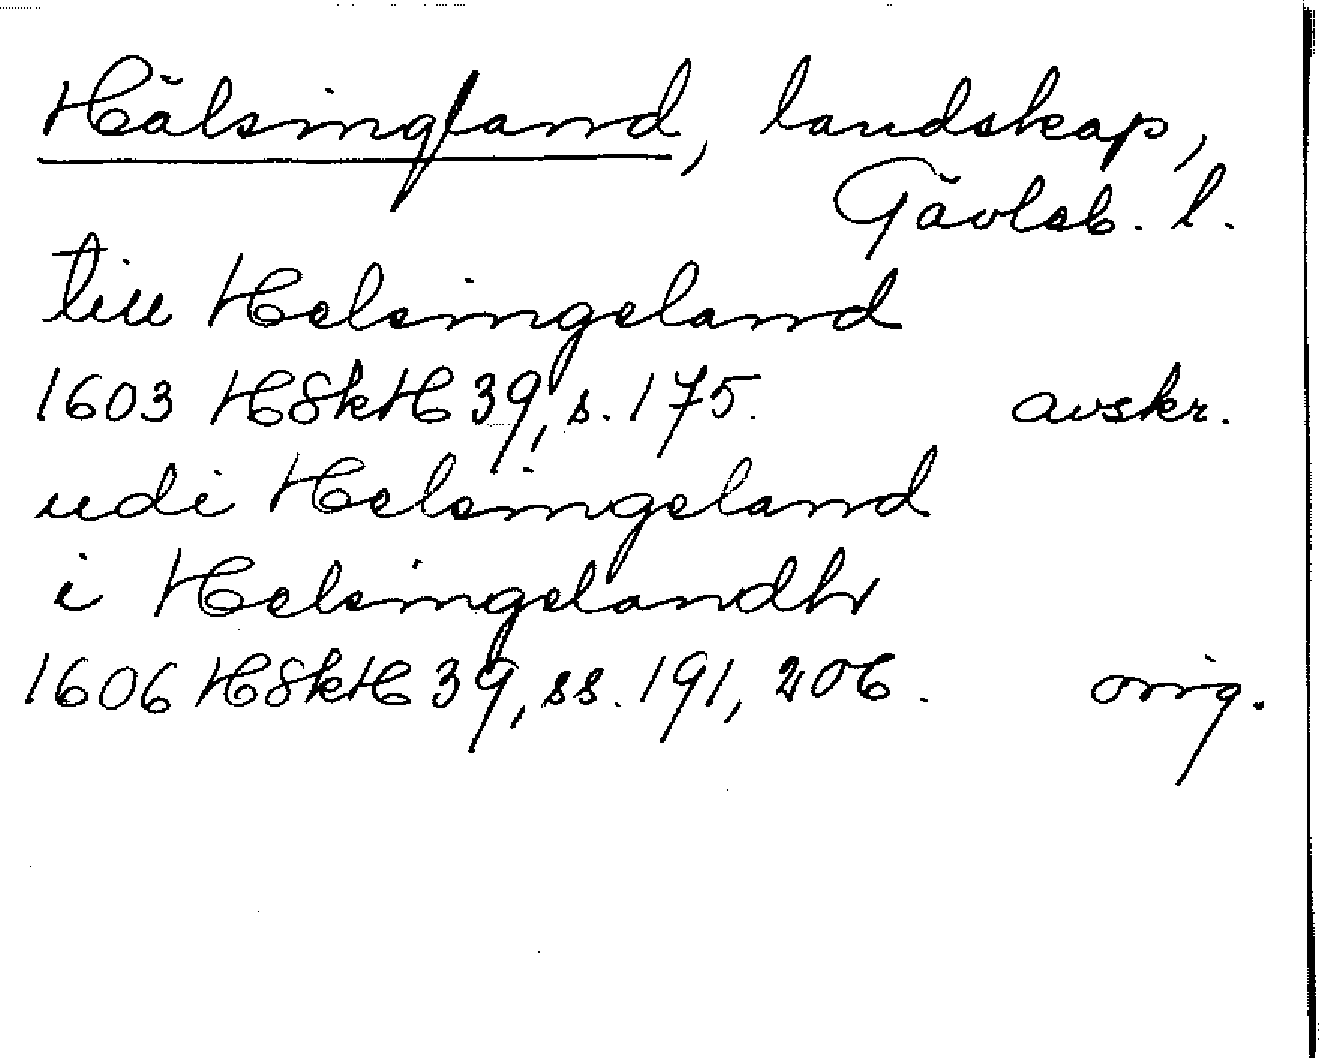 Hälsingland, landskap,
Gävleb. l.
till Helsingeland
1603 HSkH 39, s. 175. avskr.
udi Helsingeland
i Helsingelandh
1606 HSkH 39, ss. 191, 206. orig.